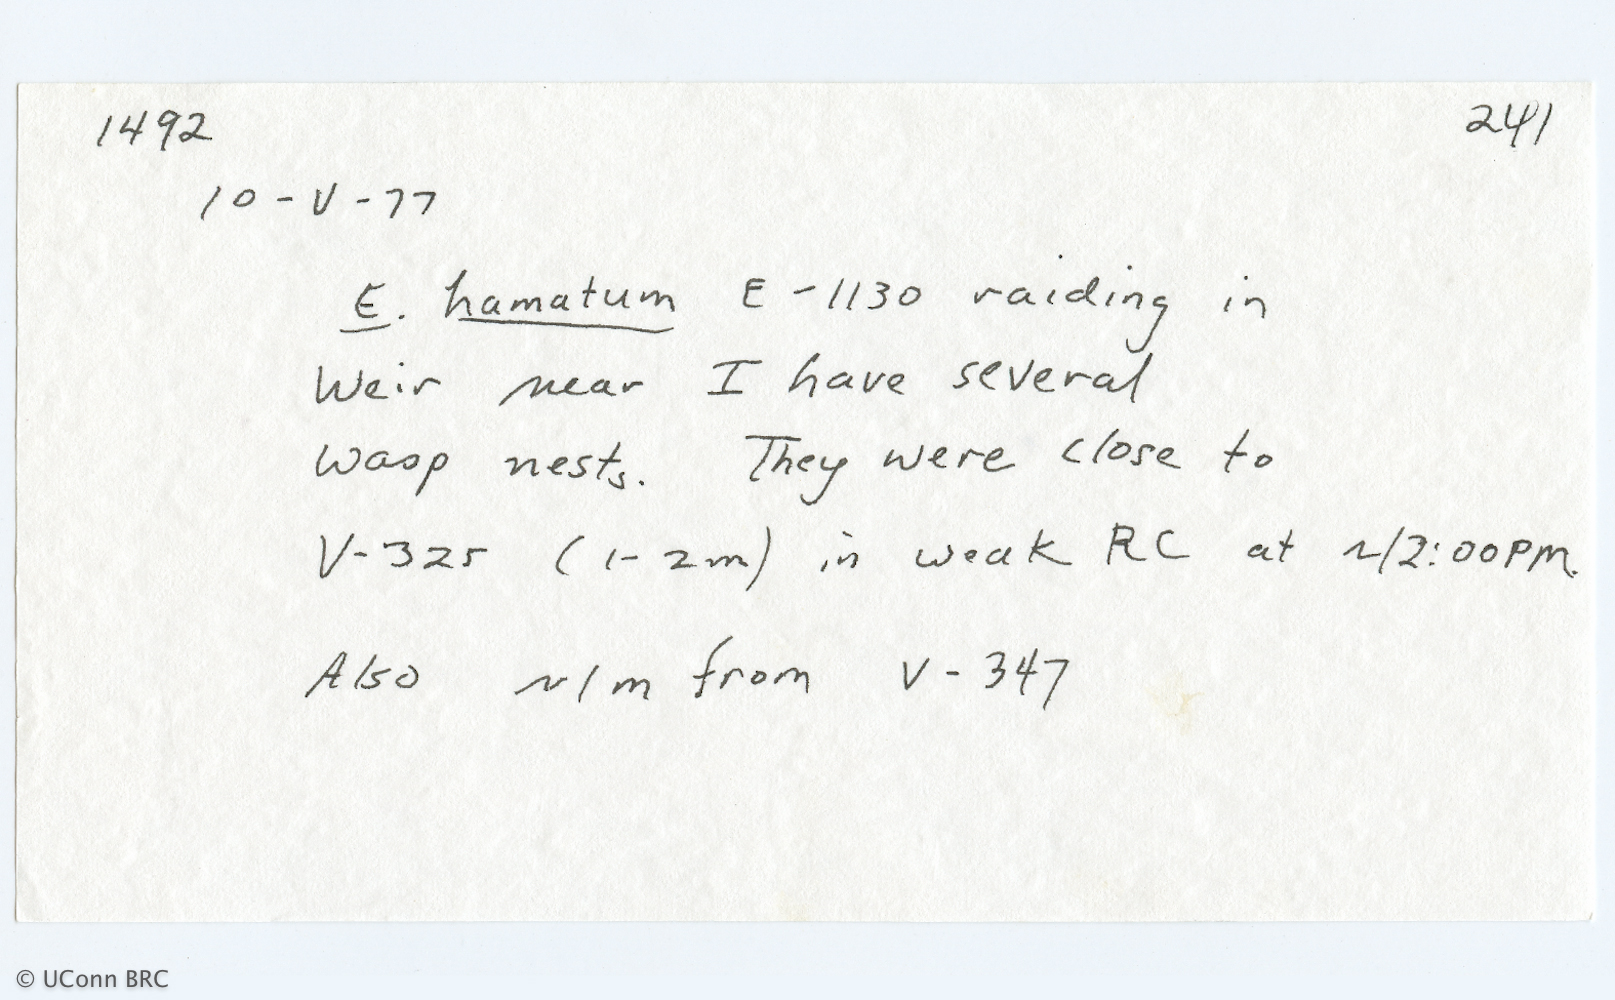 1492 241
10-V-77
E. hamatum E-1130 raiding in
Weir near I have several
wasp nests. They were close to
V-325 (1-2m) in weak RC at ~12:00PM.
Also ~1m from V-347
© UConn BRC